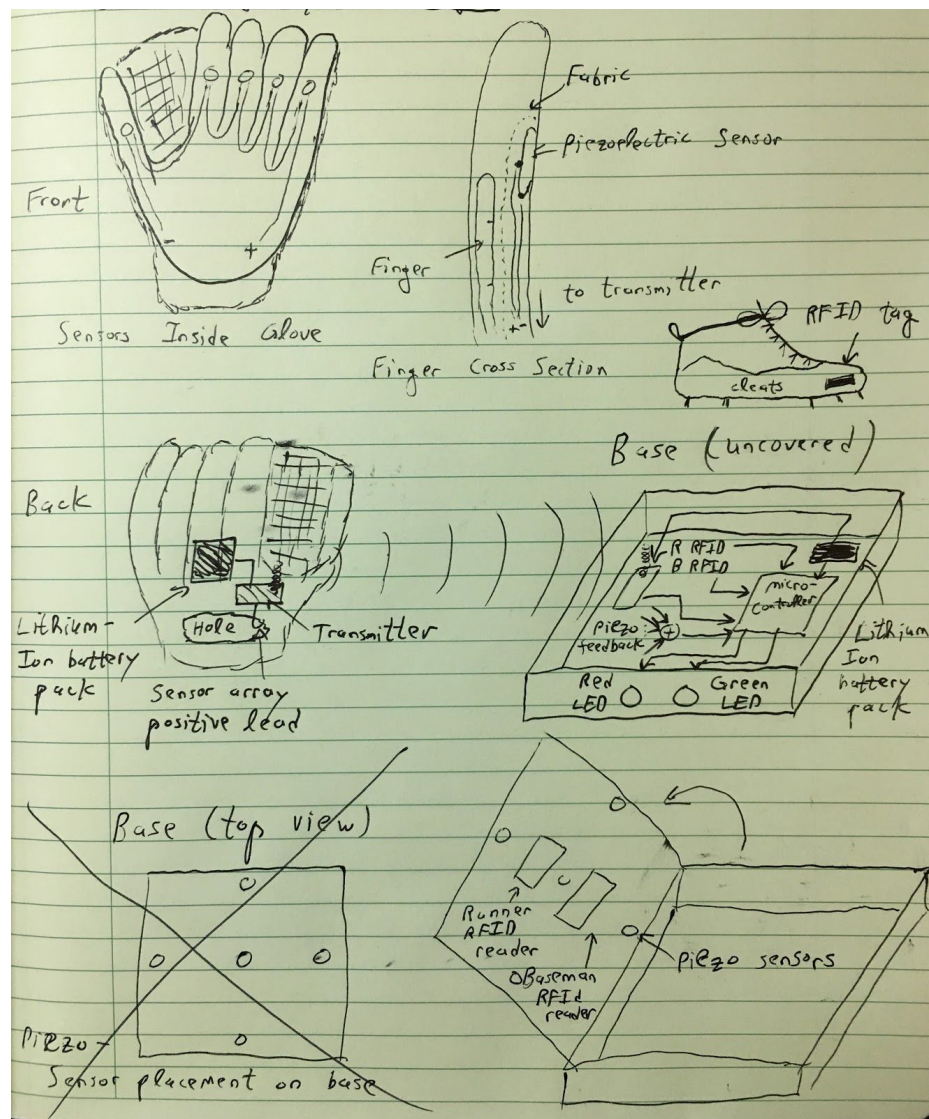 Front
Sensors Inside Glove
Fabric
Piezoelectric Sensor
Finger
to transmitter
+-
Finger Cross Section
RFID tag
cleats
- +
Back
Lithium-
Ion battery
pack
Hole
Transmitter
Sensor array
positive lead
Base (uncovered)
R RFID
B RFID
micro-
controller
Piezo
feedback
+
Red
LED
Green
LED
Lithium
Ion
battery
pack
Base (top view)
Piezo-
Sensor placement on base
Runner
RFID
reader
Baseman
RFId
reader
Piezo sensors